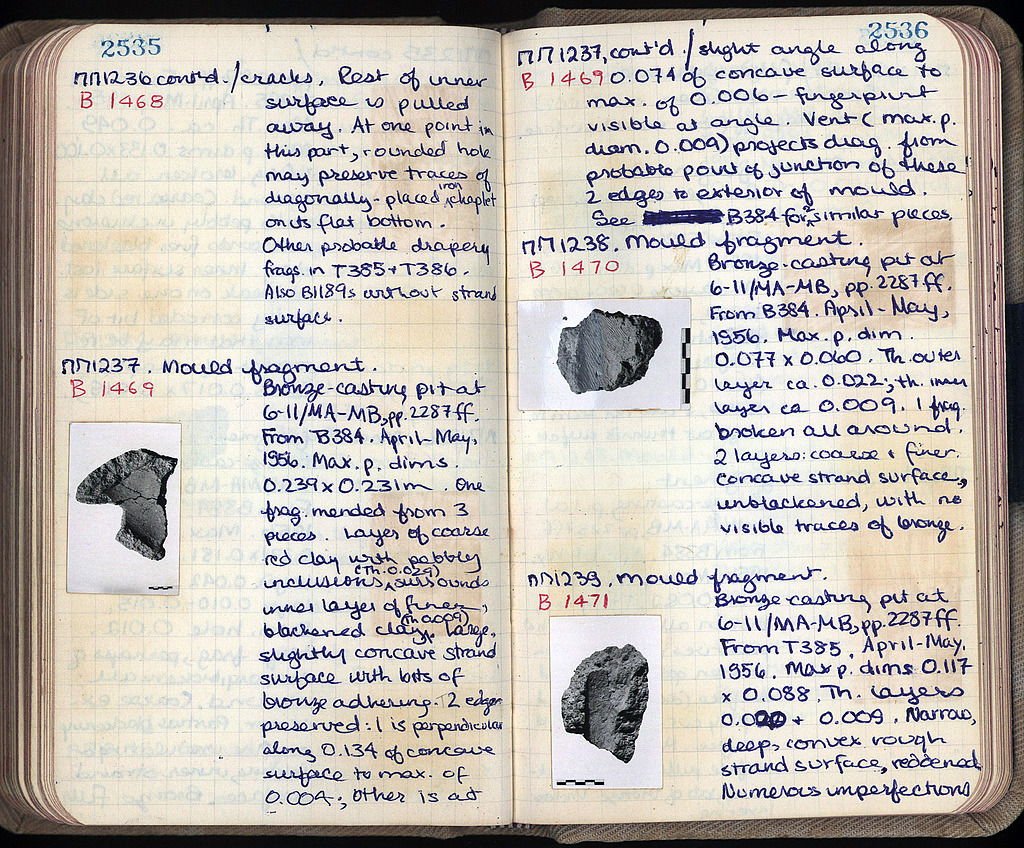 2535
ΠΠ1236 cont'd. / cracks. Rest of inner
B 1468
surface is pulled
away. At one point in
this part, rounded hole
may preserve traces of
diagonally-placed iron chaplet
on its flat bottom.
Other probable drapery
frags. in T385 + T386.
Also B1189s without strand
surface.
ΠΠ1237. Mould fragment.
B 1469
Bronze-casting pit at
6-11/MA-MB, pp. 2287ff.
From B384. April-May,
1956. Max. p. dims.
0.239 x 0.231m. One
frag. mended from 3
pieces. Layer of coarse
red clay with pebbly
inclusions (Th. 0.029) surrounds
inner layer of finer,
blackened clay (Th 0.009). Large,
slightly concave strand
surface with bits of
bronze adhering. 2 edges
preserved: 1 is perpendicular
along 0.134 of concave
surface to max. of
0.004; other is at
2536
ΠΠ1237, cont'd. / slight angle along
B 1469 0.074 of concave surface to
max. of 0.006 - fingerprint
visible at angle. Vent (max. p.
diam. 0.009) projects diag. from
probable point of junction of these
2 edges to exterior of mould.
See B384 for 2 similar pieces.
ΠΠ1238. Mould fragment.
B 1470
Bronze-casting pit at
6-11/MA-MB, pp. 2287ff.
From B384. April-May,
1956. Max. p. dim.
0.077 x 0.060. Th. outer
layer ca. 0.022; th. inner
layer ca 0.009. 1 frag.
broken all around.
2 layers: coarse + finer.
Concave strand surface,
unblackened, with no
visible traces of bronze.
ΠΠ1239. Mould fragment.
B 1471
Bronze-casting pit at
6-11/MA-MB, pp. 2287ff.
From T385. April-May,
1956. Max p. dims 0.117
x 0.088. Th. layers
+ 0.009. Narrow,
deep, convex rough
strand surface, reddened
Numerous imperfections